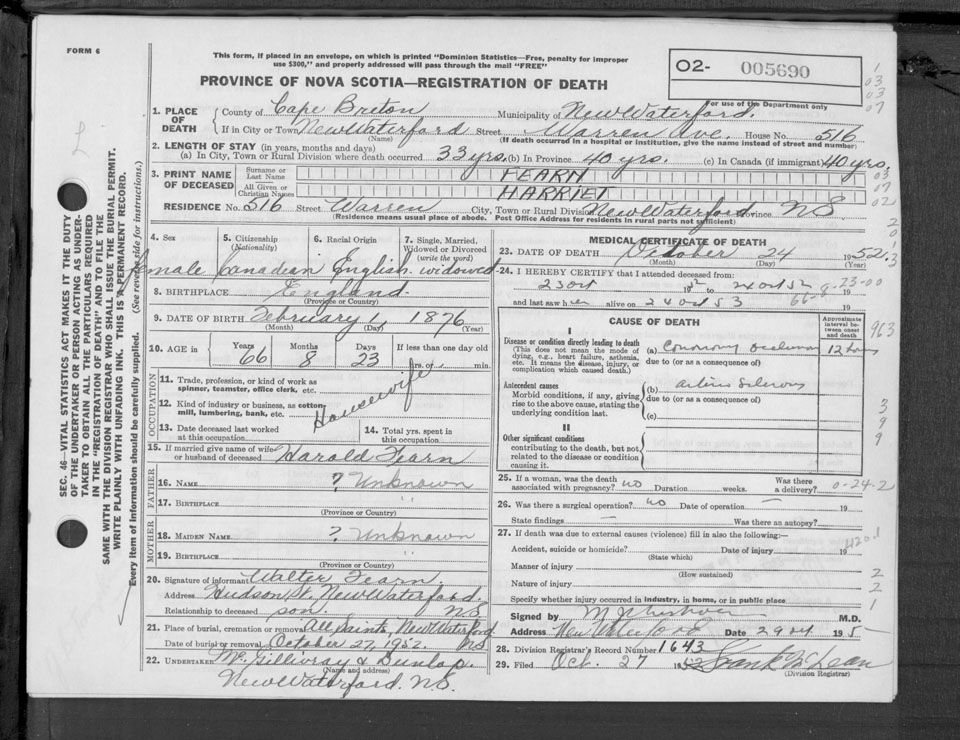 FORM 6
This form, if placed in an envelope, on which is printed "Dominion Statistics—Free, penalty for improper
use $300," and properly addressed will pass through the mail "FREE"
PROVINCE OF NOVA SCOTIA—REGISTRATION OF DEATH
O2- 005690
For use of the Department only
1. PLACE OF DEATH
County of Cape Breton Municipality of New Waterford.
If in City or Town New Waterford Street Warren Ave. House No. 516
(Name) (If death occurred in a hospital or institution, give the name instead of street and number)
2. LENGTH OF STAY (in years, months and days)
(a) In City, Town or Rural Division where death occurred 33 yrs. (b) In Province 40 yrs. (c) In Canada (if immigrant) 40 yrs.
3. PRINT NAME OF DECEASED
Surname or Last Name FEARN
All Given or Christian Names HARRIET
RESIDENCE No. 516 Street Warren City, Town or Rural Division New Waterford Province N.S.
(Residence means usual place of abode. Post Office Address for residents in rural parts not sufficient)
4. Sex 5. Citizenship (Nationality) 6. Racial Origin 7. Single, Married, Widowed or Divorced (write the word)
female Canadian English widowed
8. BIRTHPLACE England.
(Province or Country)
9. DATE OF BIRTH February 1, 1876
(Month) (Day) (Year)
10. AGE in Years Months Days If less than one day old
66 8 23 hrs. or min.
OCCUPATION
11. Trade, profession, or kind of work as
spinner, teamster, office clerk, etc.
Housewife
12. Kind of industry or business, as cotton-
mill, lumbering, bank, etc.
13. Date deceased last worked
at this occupation
14. Total yrs. spent in
this occupation
15. If married give name of wife
or husband of deceased Harold Fearn
FATHER
16. NAME ? Unknown
17. BIRTHPLACE "
(Province or Country)
MOTHER
18. MAIDEN NAME ? Unknown
19. BIRTHPLACE
(Province or Country)
20. Signature of informant Walter Fearn.
Address Hudson St. New Waterford.
Relationship to deceased son. N.S
21. Place of burial, cremation or removal All Saints, New Waterford
Date of burial or removal October 27, 1952. NS
22. UNDERTAKER McGillivray & Dunlop.
(Name and address)
New Waterford. N.S.
MEDICAL CERTIFICATE OF DEATH
23. DATE OF DEATH October 24 1952.
(Month) (Day) (Year)
24. I HEREBY CERTIFY that I attended deceased from:
23 Oct 19 52 to 24 Oct 52 19
and last saw her alive on 24 Oct 53 19
8-23-00
66
CAUSE OF DEATH
Approximate interval between onset and death
I
Disease or condition directly leading to death
(This does not mean the mode of
dying, e.g., heart failure, asthenia,
etc. It means the disease, injury, or
complication which caused death.)
(a) Coronary Occlusion 12 hours
due to (or as a consequence of)
Antecedent causes
Morbid conditions, if any, giving
rise to the above cause, stating the
underlying condition last.
(b) Arterio Sclerosis
due to (or as a consequence of)
(c)
II
Other significant conditions
contributing to the death, but not
related to the disease or condition
causing it.
963
25. If a woman, was the death
associated with pregnancy? no Duration weeks. Was there
a delivery?
0-24-2
26. Was there a surgical operation? no Date of operation — 19
State findings — Was there an autopsy?
27. If death was due to external causes (violence) fill in also the following:—
420.1
Accident, suicide or homicide? — Date of injury 19
(State which)
Manner of injury
(How sustained)
Nature of injury
Specify whether injury occurred in industry, in home, or in public place
Signed by M.D.
Address New Waterford Date 29 Oct. 195-
28. Division Registrar's Record Number 1643
29. Filed Oct. 27 1952 Frank McLean
(Division Registrar)
SEC. 46—VITAL STATISTICS ACT MAKES IT THE DUTY
OF THE UNDERTAKER OR PERSON ACTING AS UNDER-
TAKER TO OBTAIN ALL THE PARTICULARS REQUIRED
IN THE "REGISTRATION OF DEATH" AND TO FILE THE
SAME WITH THE DIVISION REGISTRAR WHO SHALL ISSUE THE BURIAL PERMIT.
WRITE PLAINLY WITH UNFADING INK. THIS IS A PERMANENT RECORD.
Every item of information should be carefully supplied. (See reverse side for instructions.)